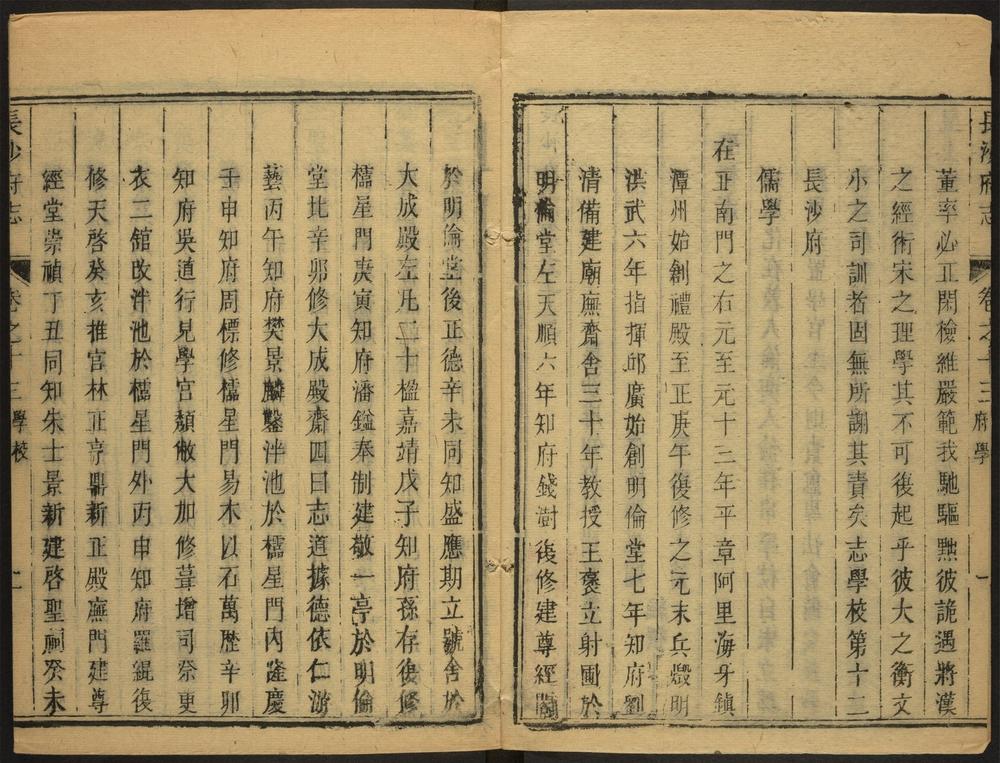 長沙府志 卷之十三 府學 一
董率必正閑檢維嚴範我馳驅黜彼詭遇將漢
之經術宋之理學其不可復起乎彼大之衡文
小之司訓者固無所謝其責矣志學校第十二
長沙府
儒學
在正南門之右元至元十三年平章阿里海牙鎮
潭州始創禮殿至正庚午復修之元末兵燬明
洪武六年指揮邱廣始創明倫堂七年知府劉
清備建廟廡齋舍三十年教授王褒立射圃於
明倫堂左天順六年知府錢澍後修建尊經閣
於明倫堂後正德辛未同知盛應期立號舍於
大成殿左凡三十楹嘉靖戊子知府孫存復修
櫺星門庚寅知府潘鎰奉制建敬一亭於明倫
堂北辛卯修大成殿齋四曰志道據德依仁游
藝丙午知府樊景麟鑿泮池於櫺星門內隆慶
壬申知府周標修櫺星門易木以石萬歷辛卯
知府吳道行見學宮頹敝大加修葺增司祭更
衣二舘改泮池於櫺星門外丙申知府羅緄復
修天啓癸亥推官林正亨鼎新正殿廡門建尊
經堂崇禎丁丑同知朱士景新建啓聖祠癸未
長沙府志 卷之十三 學校 二